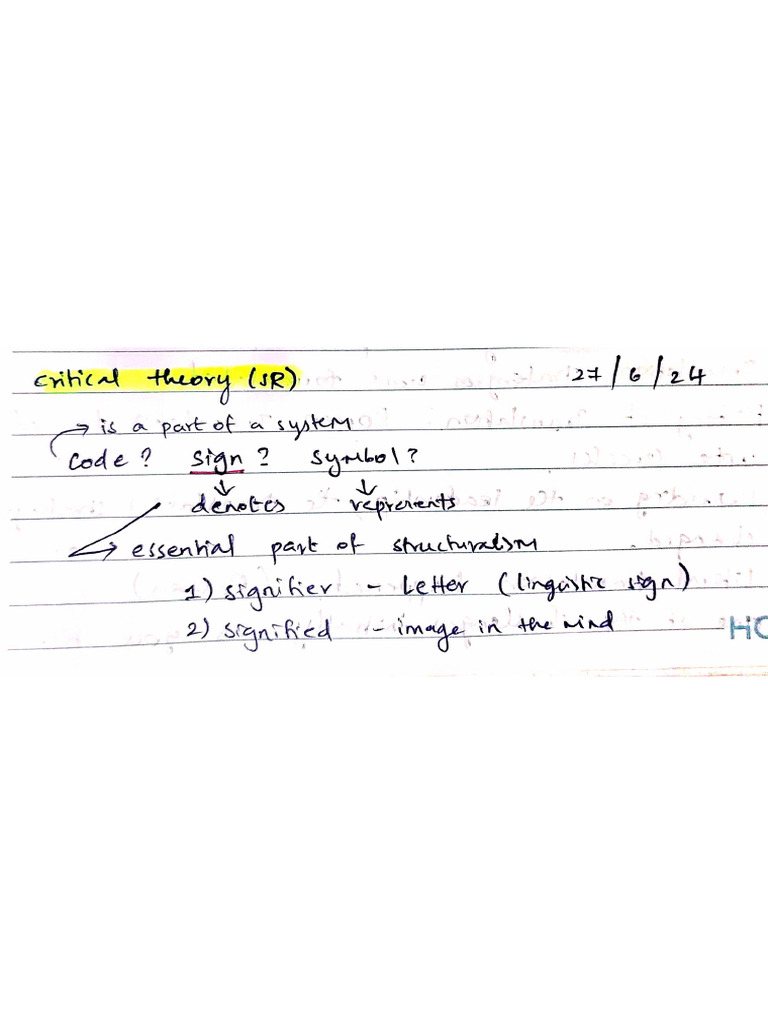 critical theory (SR) 27/6/24
→ is a part of a system
Code? Sign? Symbol?
↓ ↓
denotes represents
→ essential part of structuralism
1) signifier - Letter (linguistic sign)
2) signified - image in the mind
HC